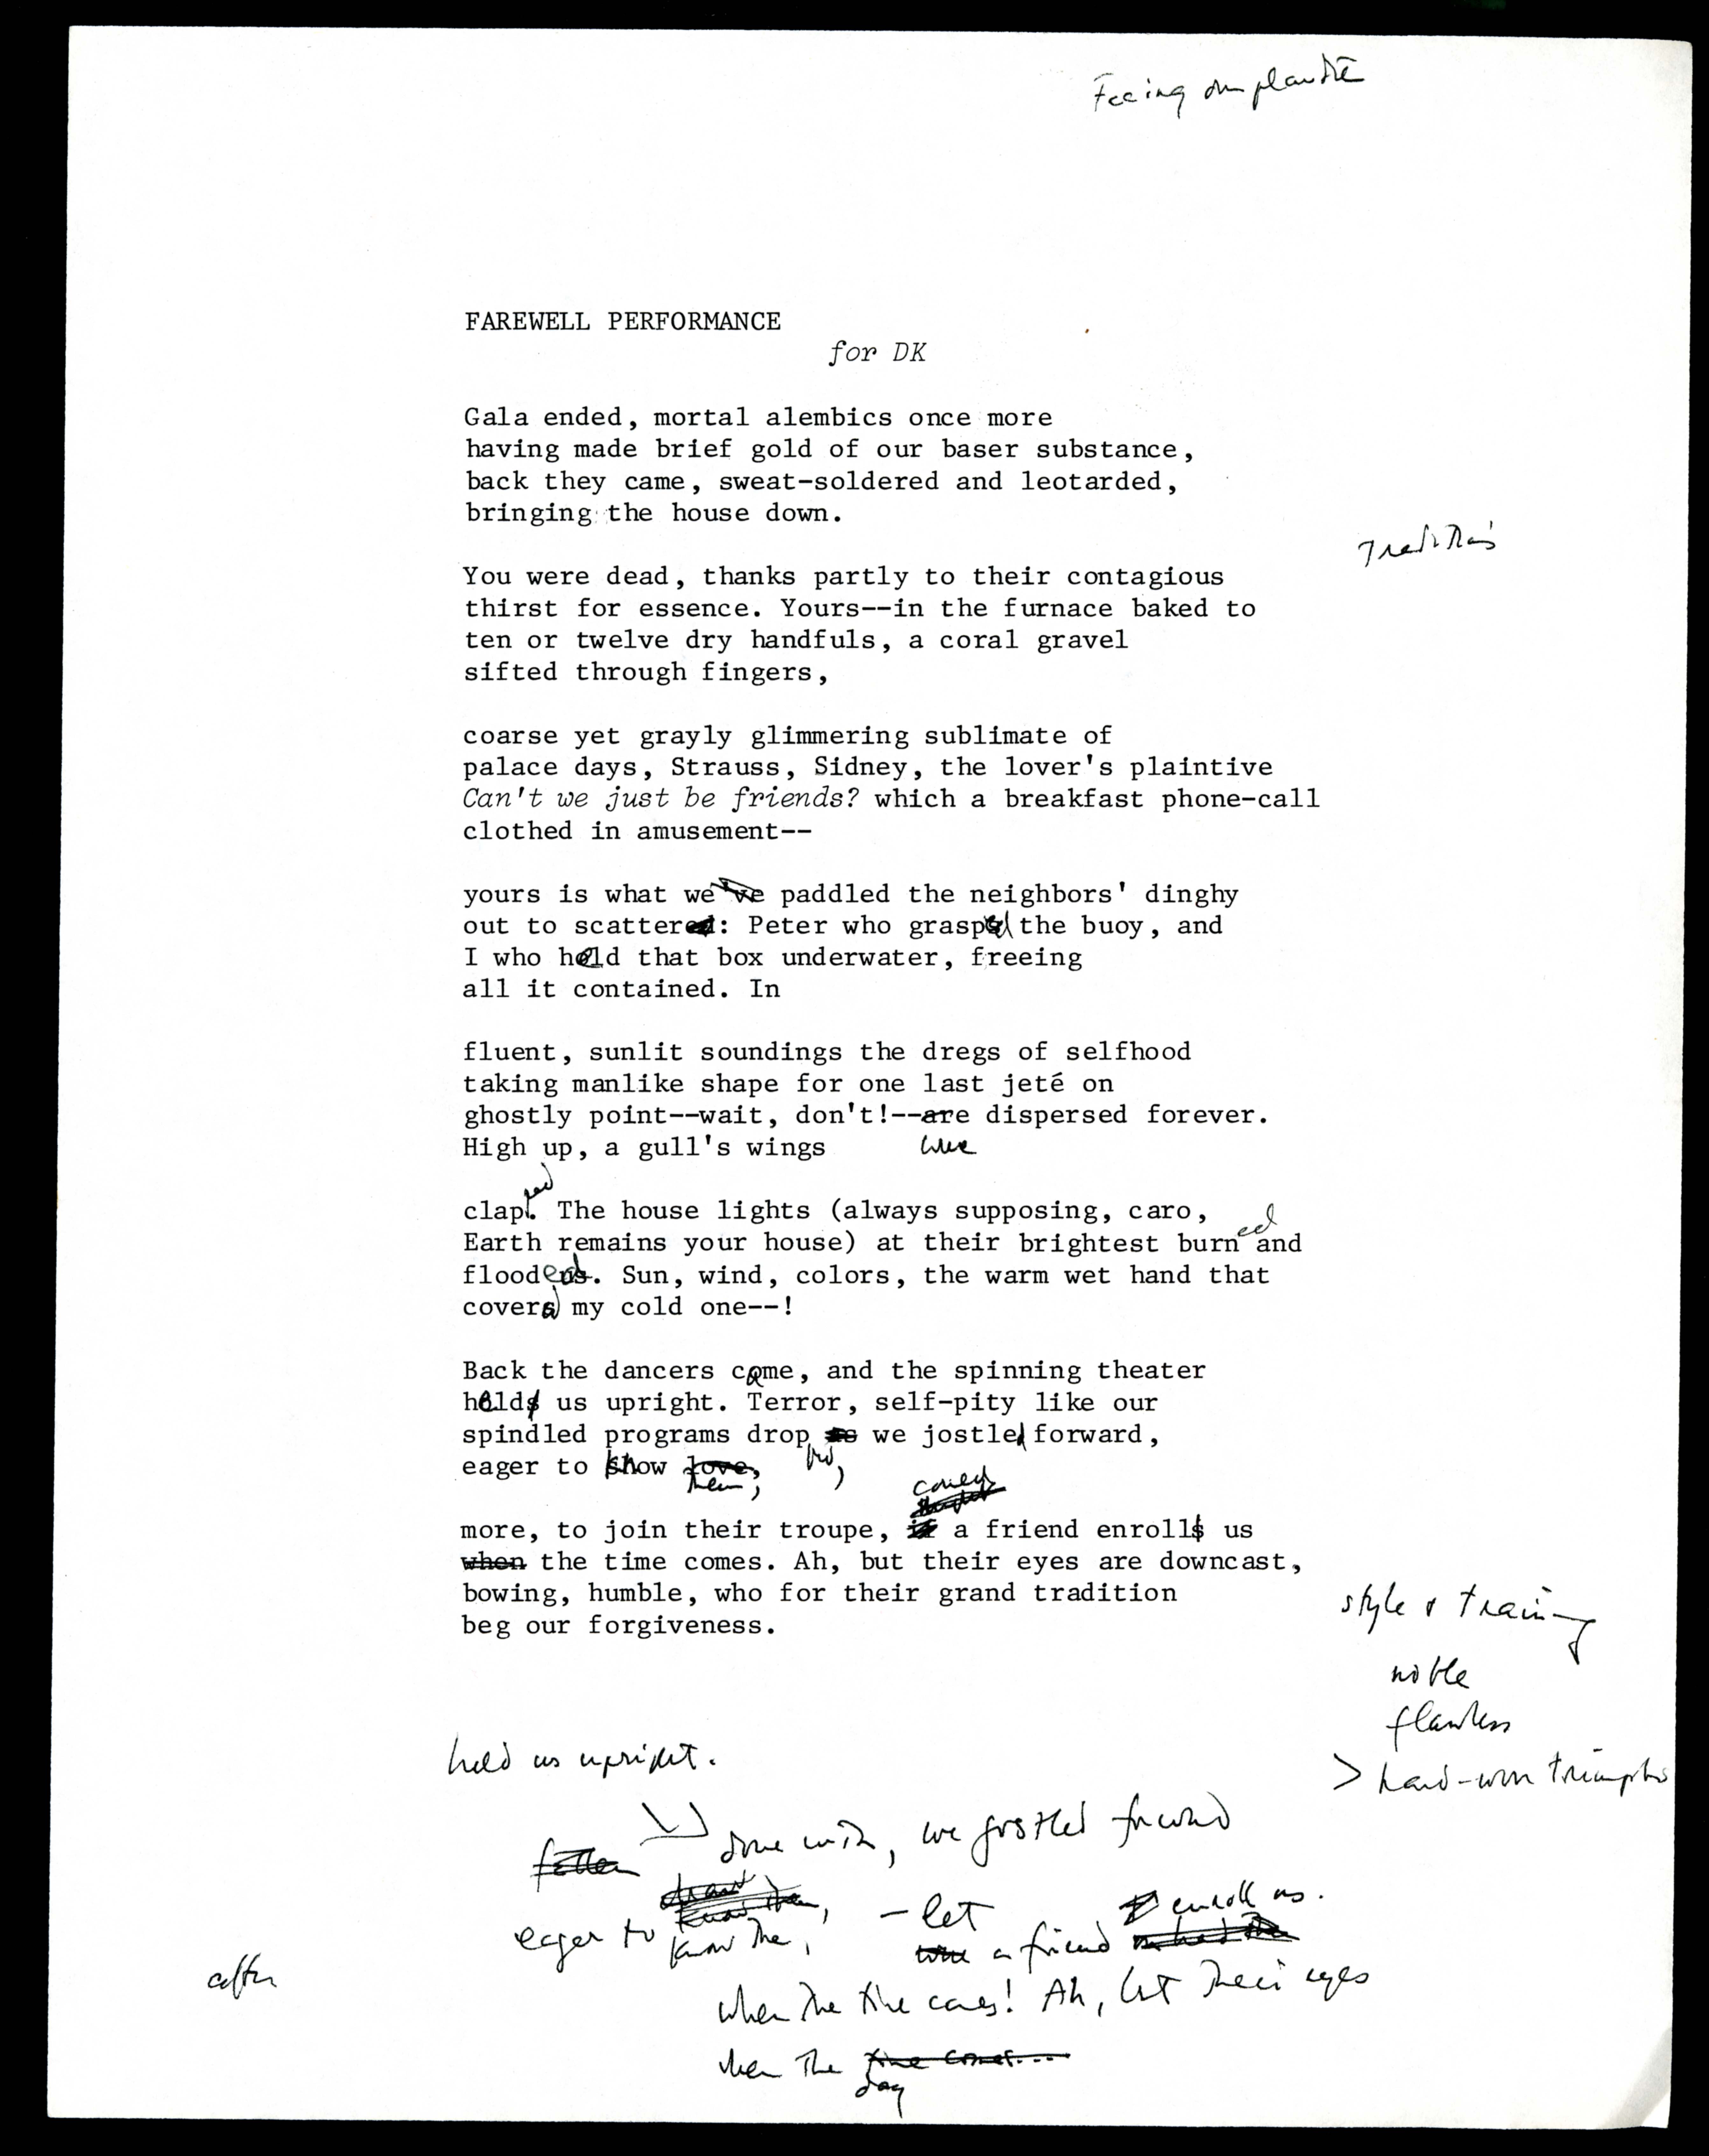 Facing
FAREWELL PERFORMANCE
for DK
Gala ended, mortal alembics once more
having made brief gold of our baser substance,
back they came, sweat-soldered and leotarded,
bringing the house down.
You were dead, thanks partly to their contagious
thirst for essence. Yours--in the furnace baked to
ten or twelve dry handfuls, a coral gravel
sifted through fingers,
coarse yet grayly glimmering sublimate of
palace days, Strauss, Sidney, the lover's plaintive
Can't we just be friends? which a breakfast phone-call
clothed in amusement--
yours is what we've paddled the neighbors' dinghy
out to scatter: Peter who grasped the buoy, and
I who held that box underwater, freeing
all it contained. In
fluent, sunlit soundings the dregs of selfhood
taking manlike shape for one last jeté on
ghostly point--wait, don't!--are dispersed forever.
High up, a gull's wings were
ped
clap. The house lights (always supposing, caro,
Earth remains your house) at their brightest burn ed and
flooded. Sun, wind, colors, the warm wet hand that
covered my cold one--!
Back the dancers came, and the spinning theater
held us upright. Terror, self-pity like our
spindled programs drop as we jostled forward,
eager to know love,
them,
comes
more, to join their troupe, if a friend enrolls us
when the time comes. Ah, but their eyes are downcast,
bowing, humble, who for their grand tradition
beg our forgiveness.
style & training
noble
flawless
> hard-won triumphs
held us upright.
done with, we jostled forward
eager to know them, - let a friend enroll us.
after
when the time comes! Ah, but their eyes
when the time comes...
day